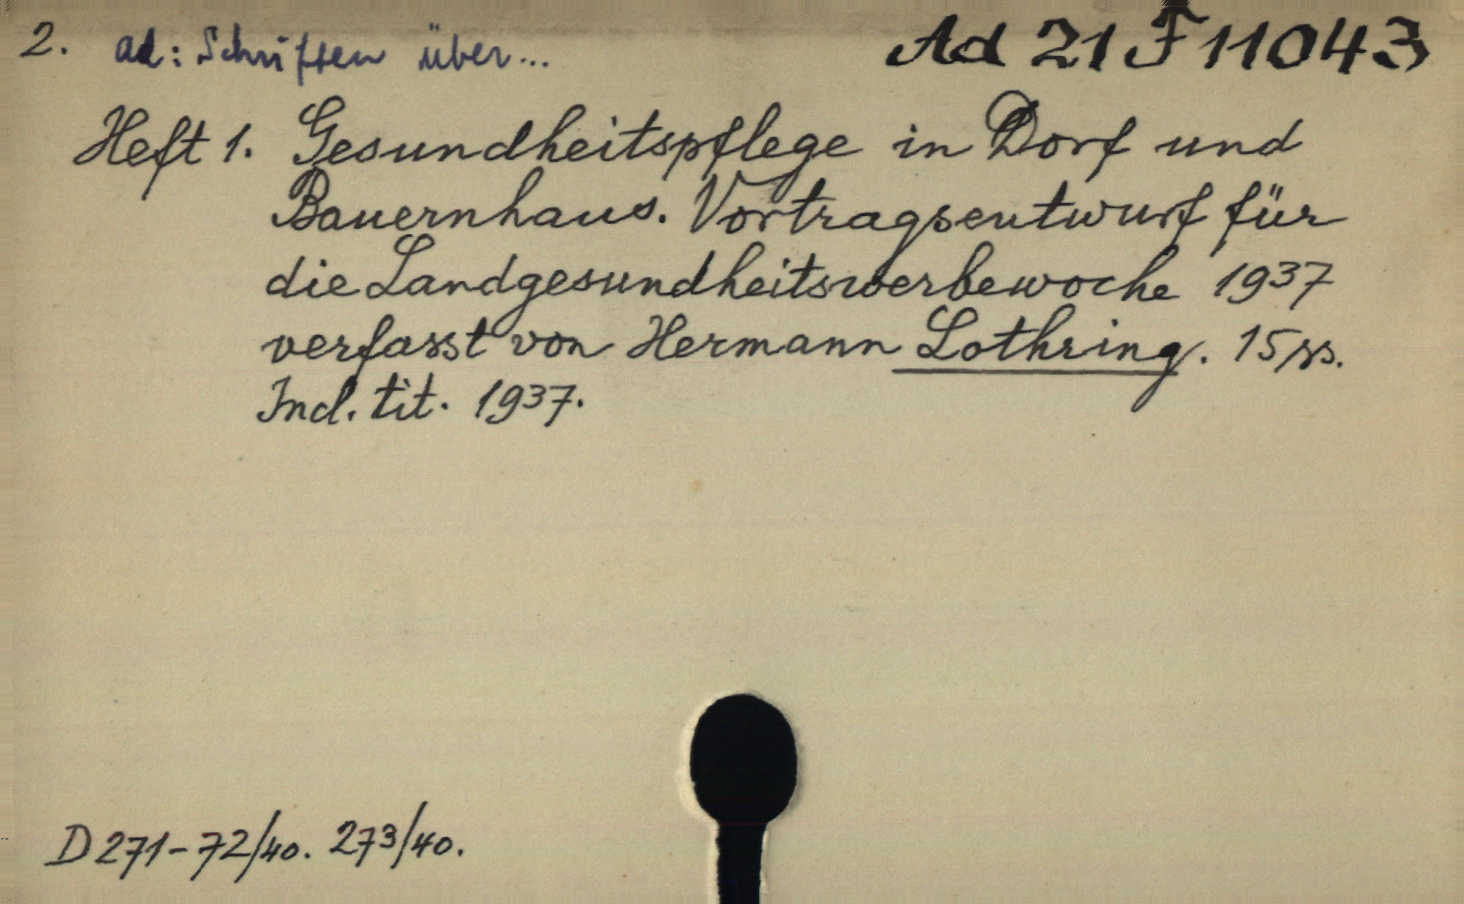 2. ad: Schriften über... Ad 21 F 11043
Heft 1. Gesundheitspflege in Dorf und
Bauernhaus. Vortragsentwurf für
die Landgesundheitswerbewoche 1937
verfasst von Hermann Lothring. 15 ss.
Ind. tit. 1937.
D 271-72/40. 273/40.